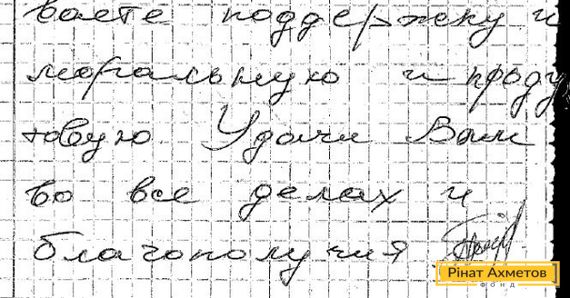 ваете поддержку и
моральную и проду
товую Удачи Вам
во все делах и
благополучия
Рінат Ахметов
ФОНД